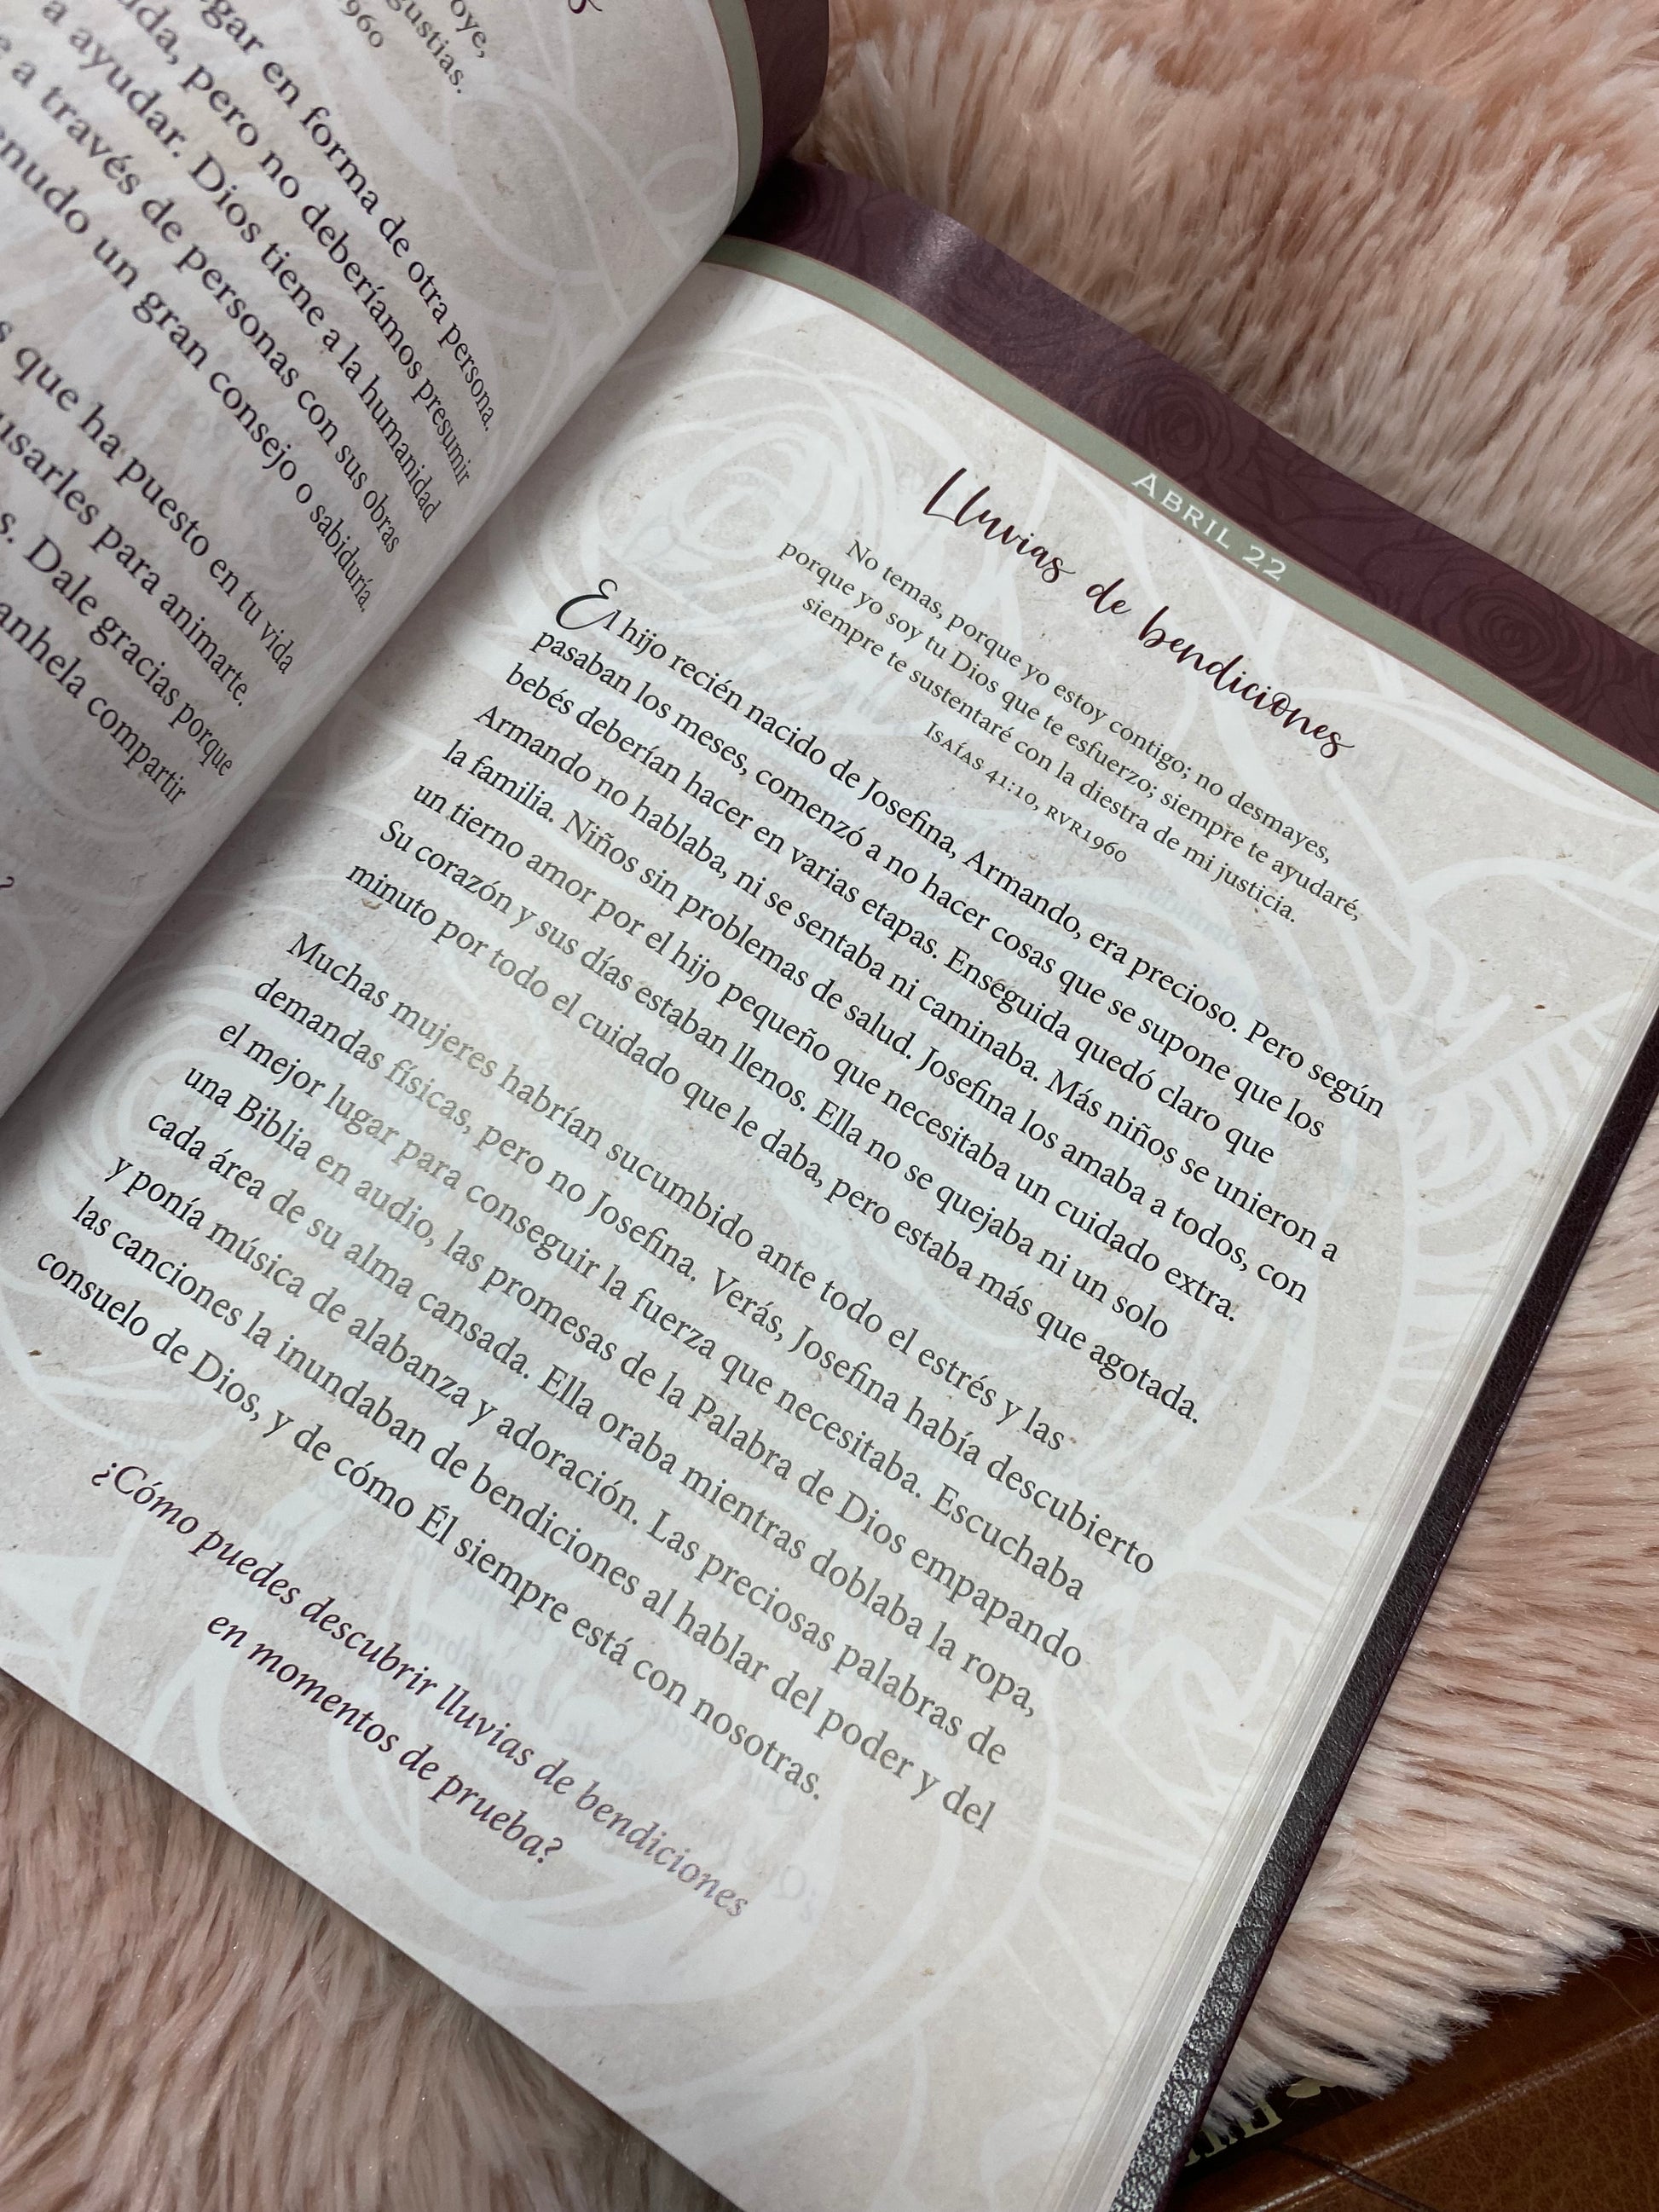 oye,
gustias.
960
gar en forma de otra persona.
pero no deberíamos presumir
a ayudar. Dios tiene a la humanidad
a través de personas con sus obras
un gran consejo o sabiduría.
que ha puesto en tu vida
usarles para animarte.
Dale gracias porque
anhela compartir
?
ABRIL 22
Lluvias de bendiciones
No temas, porque yo estoy contigo; no desmayes,
porque yo soy tu Dios que te esfuerzo; siempre te ayudaré,
siempre te sustentaré con la diestra de mi justicia.
ISAÍAS 41:10, RVR1960
El hijo recién nacido de Josefina, Armando, era precioso. Pero según
pasaban los meses, comenzó a no hacer cosas que se supone que los
bebés deberían hacer en varias etapas. Enseguida quedó claro que
Armando no hablaba, ni se sentaba ni caminaba. Más niños se unieron a
la familia. Niños sin problemas de salud. Josefina los amaba a todos, con
un tierno amor por el hijo pequeño que necesitaba un cuidado extra.
Su corazón y sus días estaban llenos. Ella no se quejaba ni un solo
minuto por todo el cuidado que le daba, pero estaba más que agotada.
Muchas mujeres habrían sucumbido ante todo el estrés y las
demandas físicas, pero no Josefina. Verás, Josefina había descubierto
el mejor lugar para conseguir la fuerza que necesitaba. Escuchaba
una Biblia en audio, las promesas de la Palabra de Dios empapando
cada área de su alma cansada. Ella oraba mientras doblaba la ropa,
y ponía música de alabanza y adoración. Las preciosas palabras de
las canciones la inundaban de bendiciones al hablar del poder y del
consuelo de Dios, y de cómo Él siempre está con nosotras.
¿Cómo puedes descubrir lluvias de bendiciones
en momentos de prueba?